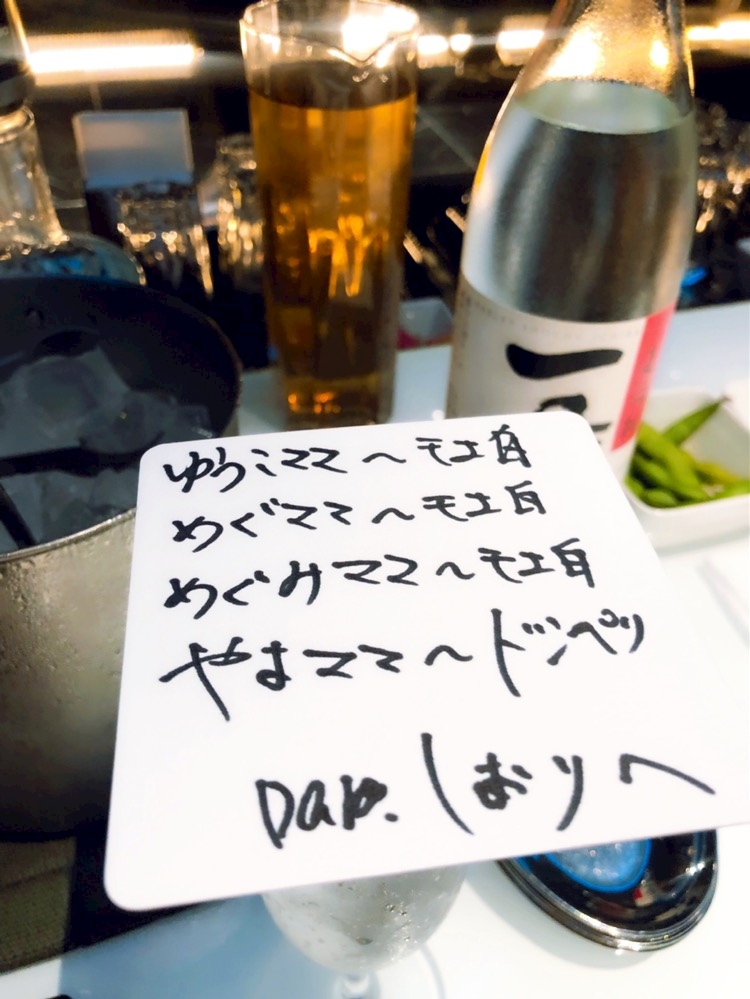 ゆうこママ〜モエ白
めぐママ〜モエ白
めぐみママ〜モエ白
やよママ〜ドンペリ
しおりへ